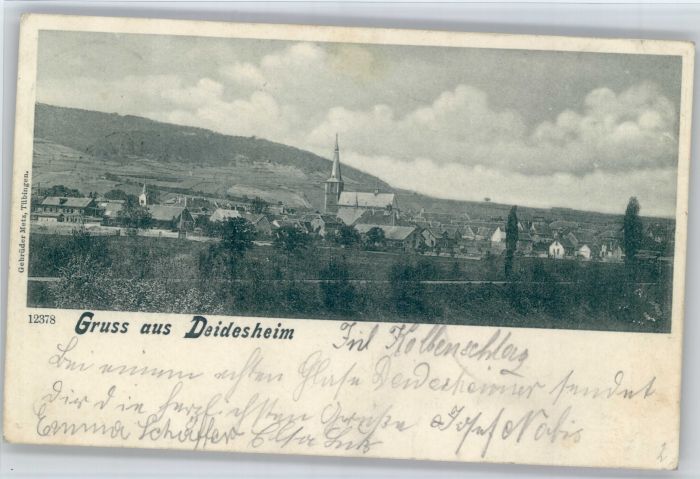 Gebrüder Metz, Tübingen.
12378
Gruss aus Deidesheim
Kolbenschlag
Bei einem echten Glase Deidesheimer sendet
dir die herzlichsten Grüße Josef Nabis
Emma Schäffer Elsa Lutz
2